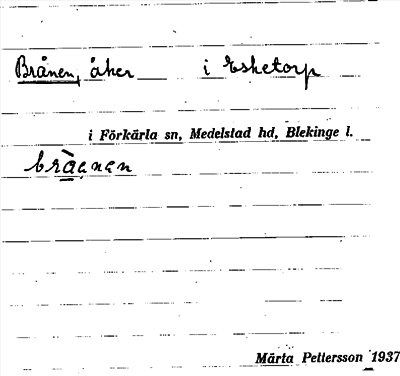 Brånen, åker i Esketorp
i Förkärla sn, Medelstad hd, Blekinge l.
Märta Pettersson 1937